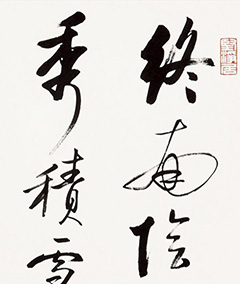 終南陰
秀積雪